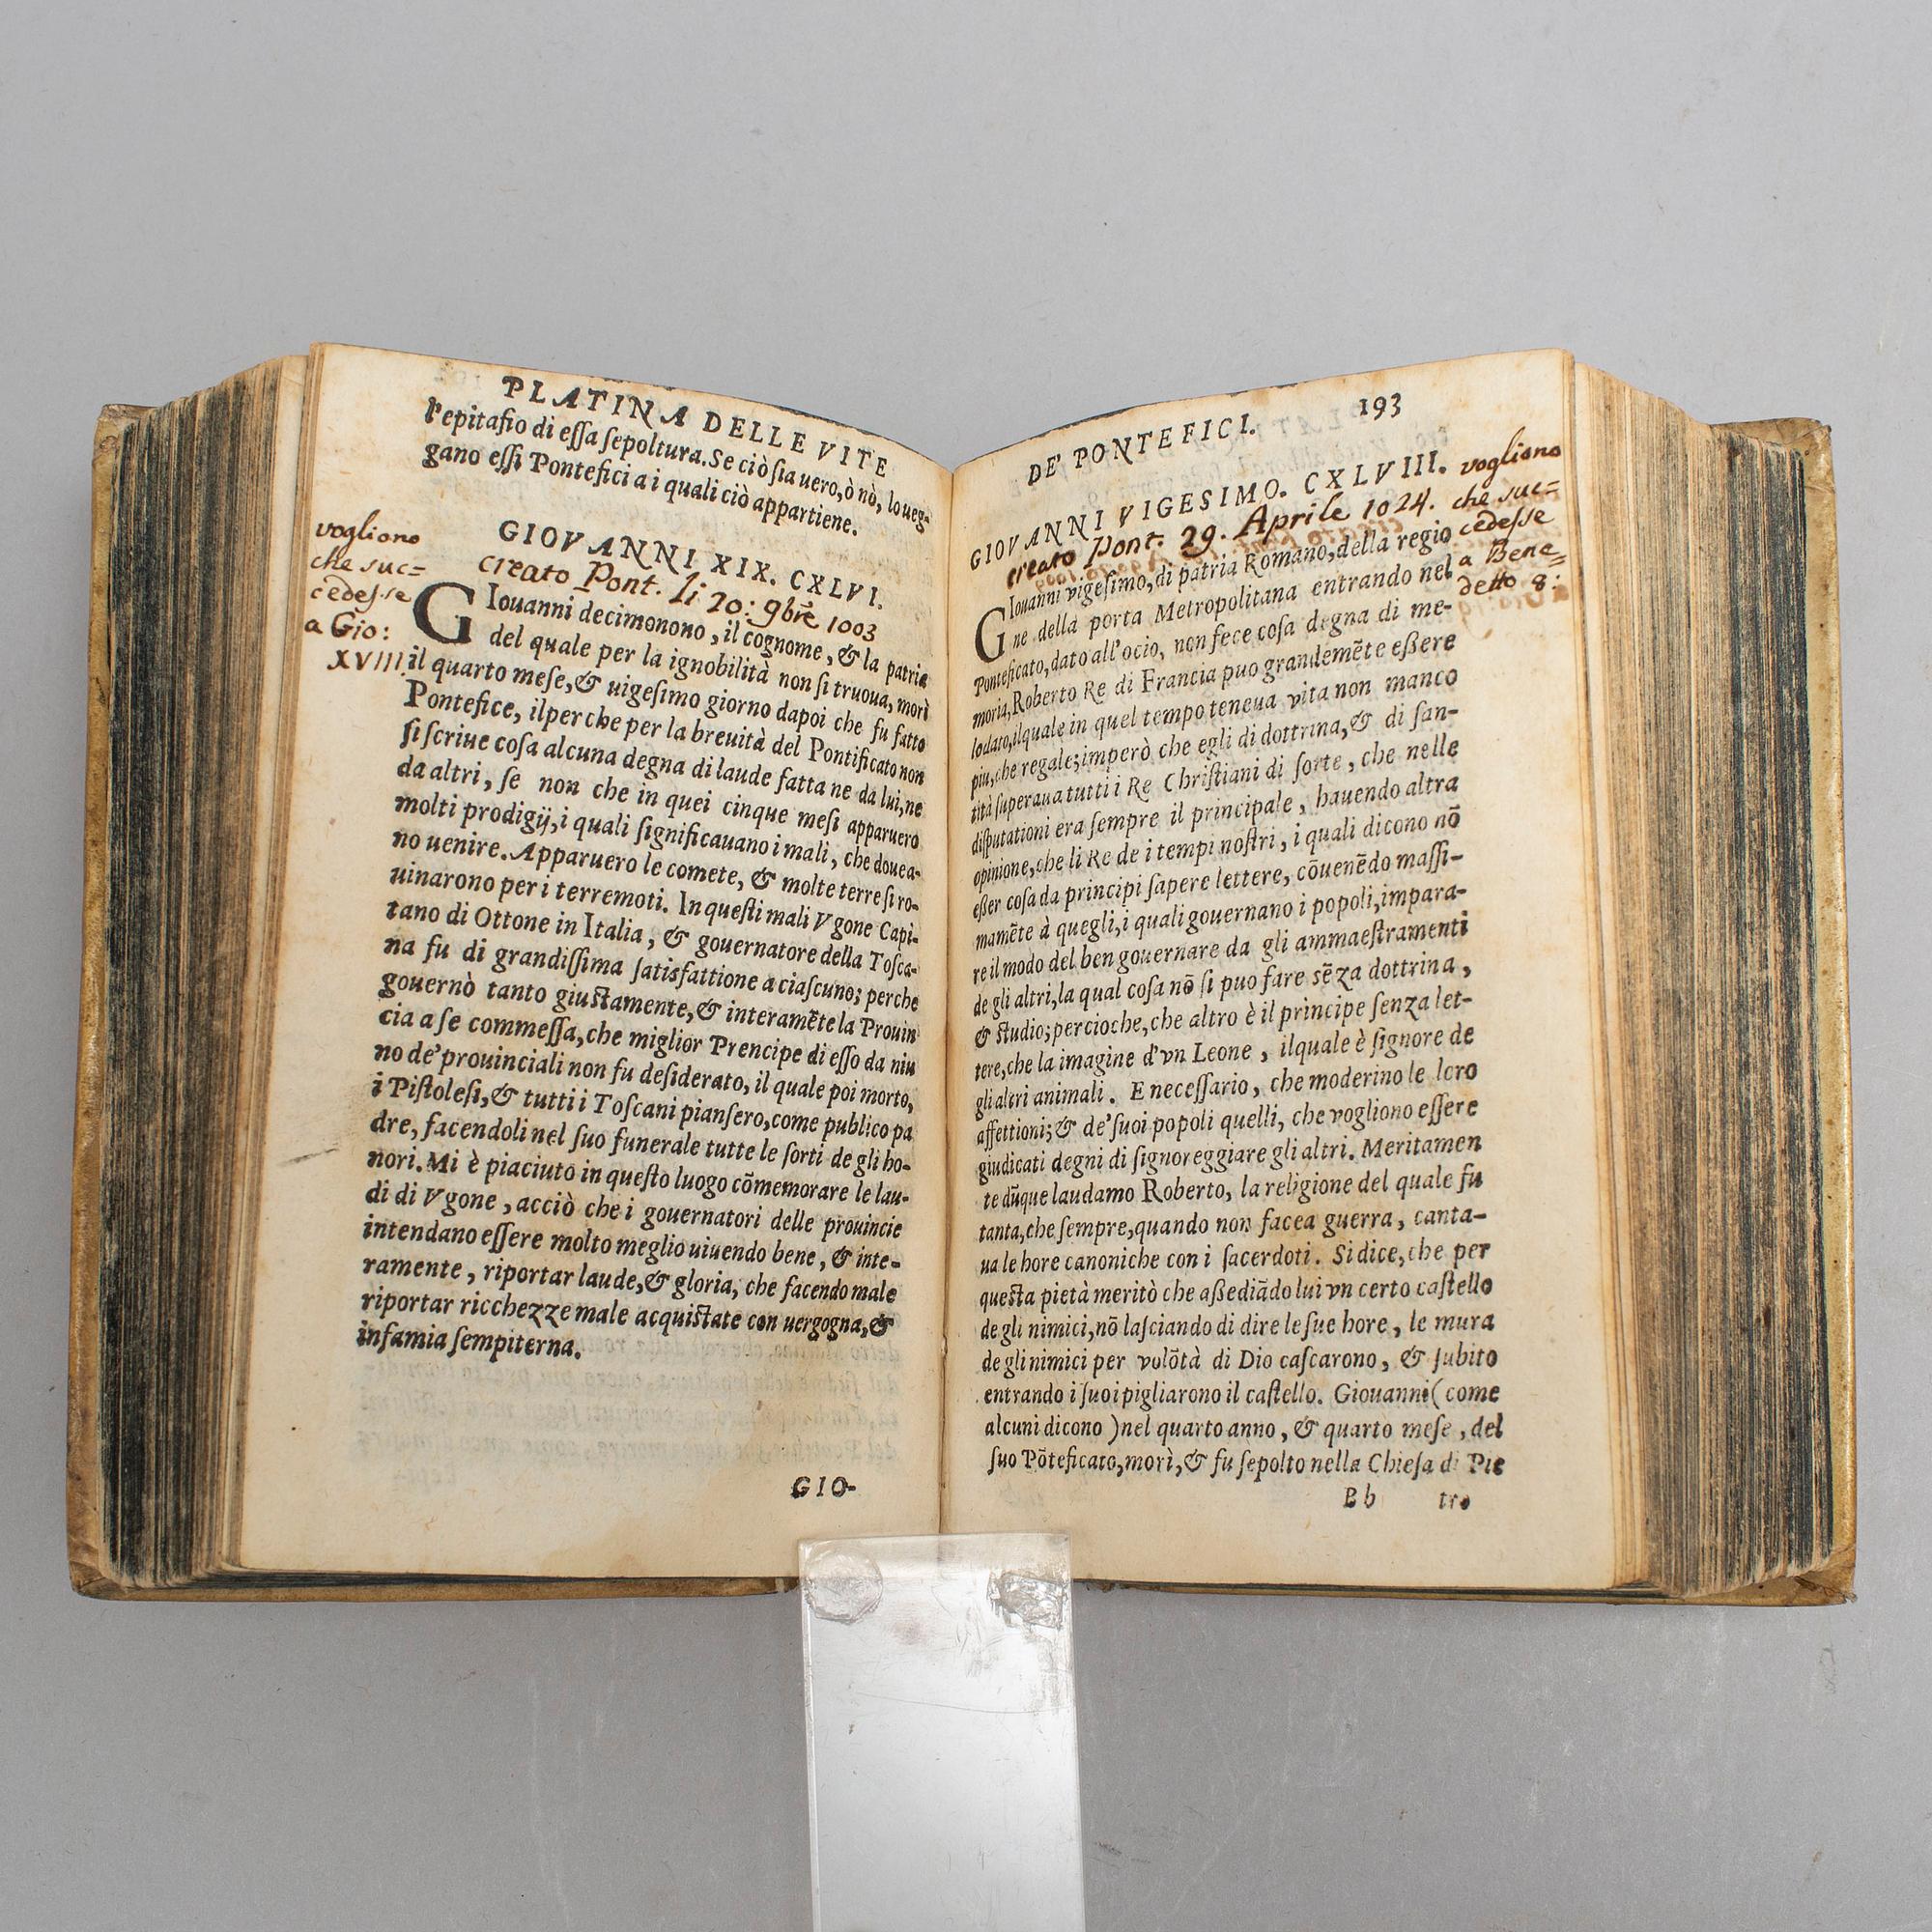 PLATINA DELLE VITE
l'epitafio di eſſa ſepoltura. Se ciò ſia uero, ò nò, lo ueg-
gano eſſi Pontefici a i quali ciò appartiene.
GIOVANNI XIX. CXLVI.
creato Pont. li 20: 9bre 1003
vogliono
che suc=
cedesse
a Gio:
XVIII
Giouanni decimonono, il cognome, & la patria
del quale per la ignobilità non ſi truoua, morì
il quarto meſe, & uigeſimo giorno dapoi che fu fatto
Pontefice, ilperche per la breuità del Pontificato non
ſi ſcriue coſa alcuna degna di laude fatta ne da lui, ne
da altri, ſe non che in quei cinque meſi apparuero
molti prodigij, i quali ſignificauano i mali, che douea-
no uenire. Apparuero le comete, & molte terre ſi ro-
uinarono per i terremoti. In queſti mali Vgone Capi-
tano di Ottone in Italia, & gouernatore della Toſca-
na fu di grandiſſima ſatisfattione a ciaſcuno; perche
gouernò tanto giuſtamente, & interamēte la Prouin
cia a ſe commeſſa, che miglior Prencipe di eſſo da niu
no de' prouinciali non fu deſiderato, il quale poi morto,
i Piſtoleſi, & tutti i Toſcani pianſero, come publico pa
dre, facendoli nel ſuo funerale tutte le ſorti de gli ho-
nori. Mi è piaciuto in queſto luogo cōmemorare le lau-
di di Vgone, acciò che i gouernatori delle prouincie
intendano eſſere molto meglio uiuendo bene, & inte-
ramente, riportar laude, & gloria, che facendo male
riportar ricchezze male acquiſtate con uergogna, &
infamia ſempiterna.
GIO-
DE' PONTEFICI. 193
GIOVANNI VIGESIMO. CXLVIII.
creato Pont. 29. Aprile 1024.
vogliono
che suc=
cedesse
a Bene=
detto 8:
Giouanni vigeſimo, di patria Romano, della regio
ne della porta Metropolitana entrando nel
Ponteficato, dato all'ocio, non fece coſa degna di me-
moria, Roberto Re di Francia puo grandemēte eßere
lodato, ilquale in quel tempo teneua vita non manco
piu, che regale; imperò che egli di dottrina, & di ſan-
tità ſuperaua tutti i Re Chriſtiani di ſorte, che nelle
diſputationi era ſempre il principale, hauendo altra
opinione, che li Re de i tempi noſtri, i quali dicono nō
eßer coſa da principi ſapere lettere, cōuenēdo maſſi-
mamēte à quegli, i quali gouernano i popoli, impara-
re il modo del ben gouernare da gli ammaeſtramenti
de gli altri, la qual coſa nō ſi puo fare sēza dottrina,
& ſtudio; percioche, che altro è il principe ſenza let-
tere, che la imagine d'vn Leone, ilquale è ſignore de
gli altri animali. E neceſſario, che moderino le loro
affettioni; & de' ſuoi popoli quelli, che vogliono eſſere
giudicati degni di ſignoreggiare gli altri. Meritamen
te dūque laudamo Roberto, la religione del quale fu
tanta, che ſempre, quando non facea guerra, canta-
ua le hore canoniche con i ſacerdoti. Si dice, che per
queſta pietà meritò che aßediādo lui vn certo caſtello
de gli nimici, nō laſciando di dire le ſue hore, le mura
de gli nimici per volōtà di Dio caſcarono, & ſubito
entrando i ſuoi pigliarono il caſtello. Giouanni (come
alcuni dicono) nel quarto anno, & quarto meſe, del
ſuo Pōteficato, morì, & fu ſepolto nella Chieſa di Pie
Bb tro